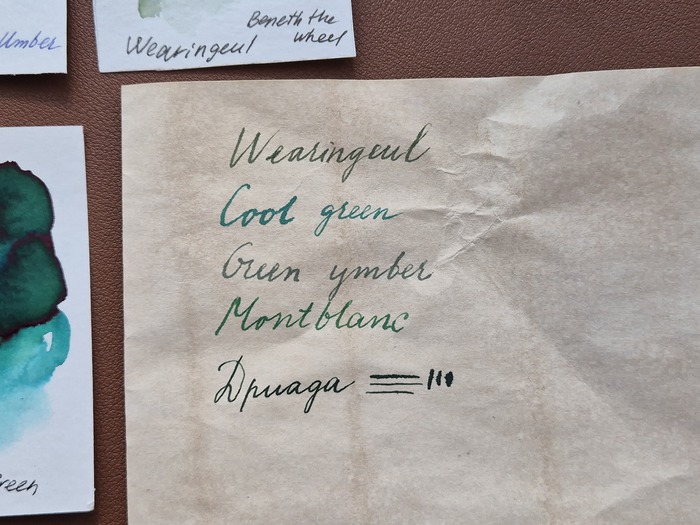 Umber
Wearingeul
Beneth the
wheel
Wearingeul
Cool green
Green ymber
Montblanc
Дриада
reen